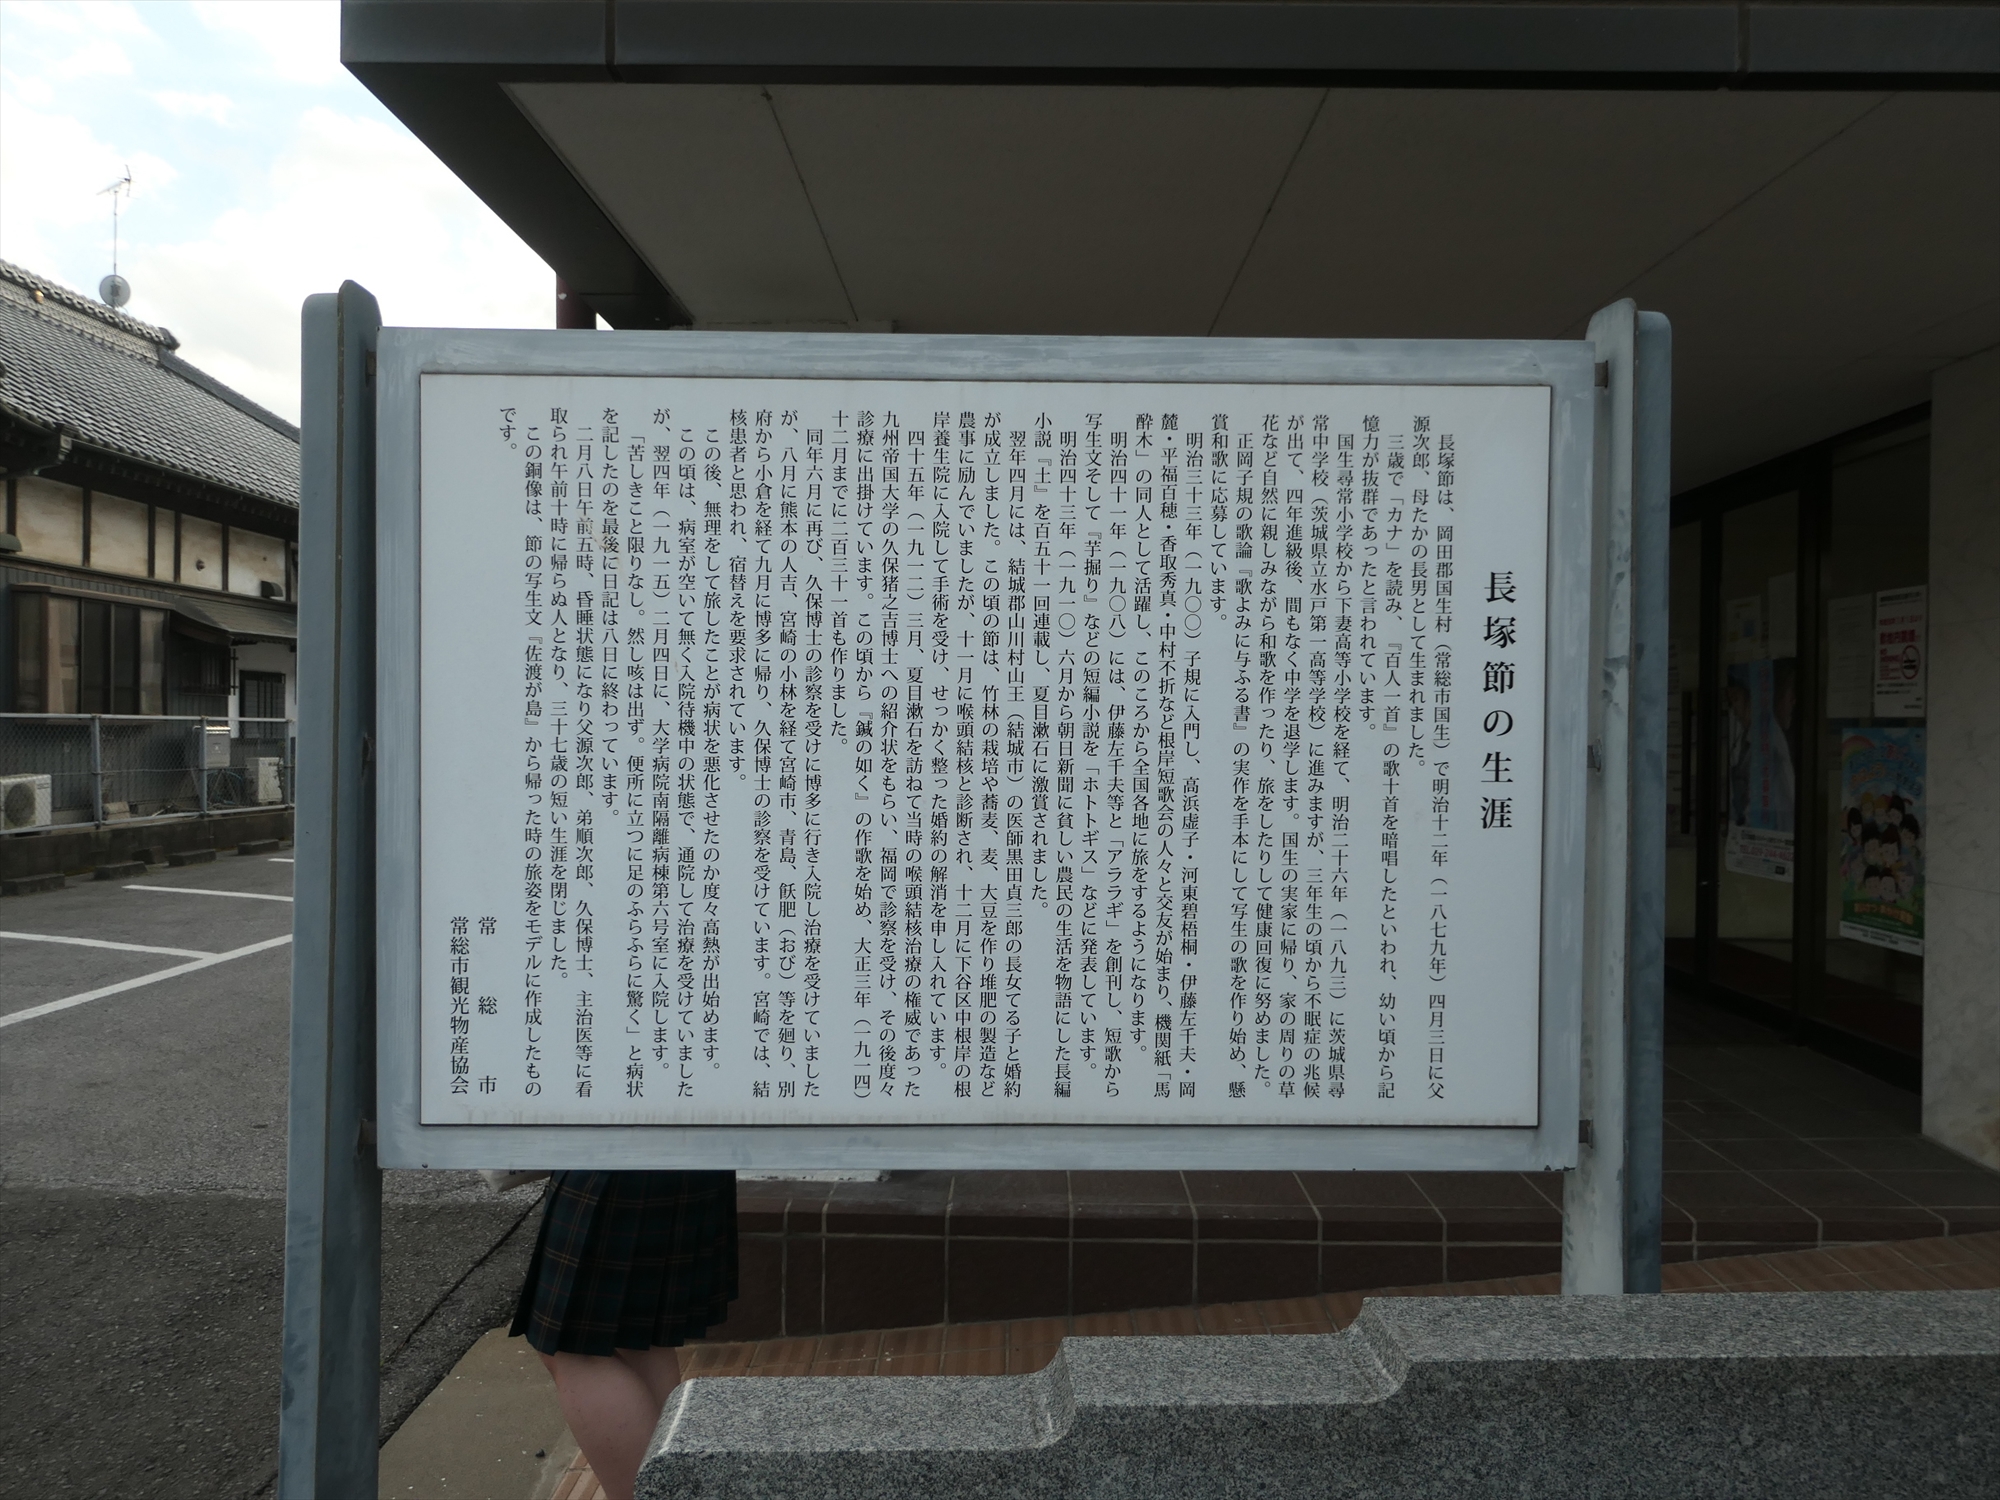 長塚節の生涯
長塚節は、岡田郡国生村（常総市国生）で明治十二年（一八七九年）四月三日に父
源次郎、母たかの長男として生まれました。
三歳で「カナ」を読み、『百人一首』の歌十首を暗唱したといわれ、幼い頃から記
憶力が抜群であったと言われています。
国生尋常小学校から下妻高等小学校を経て、明治二十六年（一八九三）に茨城県尋
常中学校（茨城県立水戸第一高等学校）に進みますが、三年生の頃から不眠症の兆候
が出て、四年進級後、間もなく中学を退学します。国生の実家に帰り、家の周りの草
花など自然に親しみながら和歌を作ったり、旅をしたりして健康回復に努めました。
正岡子規の歌論『歌よみに与ふる書』の実作を手本にして写生の歌を作り始め、懸
賞和歌に応募しています。
明治三十三年（一九〇〇）子規に入門し、高浜虚子・河東碧梧桐・伊藤左千夫・岡
麓・平福百穂・香取秀真・中村不折など根岸短歌会の人々と交友が始まり、機関紙「馬
酔木」の同人として活躍し、このころから全国各地に旅をするようになります。
明治四十一年（一九〇八）には、伊藤左千夫等と「アララギ」を創刊し、短歌から
写生文そして『芋掘り』などの短編小説を「ホトトギス」などに発表しています。
明治四十三年（一九一〇）六月から朝日新聞に貧しい農民の生活を物語にした長編
小説『土』を百五十一回連載し、夏目漱石に激賞されました。
翌年四月には、結城郡山川村山王（結城市）の医師黒田貞三郎の長女てる子と婚約
が成立しました。この頃の節は、竹林の栽培や蕎麦、麦、大豆を作り堆肥の製造など
農事に励んでいましたが、十一月に喉頭結核と診断され、十二月に下谷区中根岸の根
岸養生院に入院して手術を受け、せっかく整った婚約の解消を申し入れています。
四十五年（一九一二）三月、夏目漱石を訪ねて当時の喉頭結核治療の権威であった
九州帝国大学の久保猪之吉博士への紹介状をもらい、福岡で診察を受け、その後度々
診療に出掛けています。この頃から『鍼の如く』の作歌を始め、大正三年（一九一四）
十二月までに二百三十一首も作りました。
同年六月に再び、久保博士の診察を受けに博多に行き入院し治療を受けていました
が、八月に熊本の人吉、宮崎の小林を経て宮崎市、青島、飫肥（おび）等を廻り、別
府から小倉を経て九月に博多に帰り、久保博士の診察を受けています。宮崎では、結
核患者と思われ、宿替えを要求されています。
この後、無理をして旅したことが病状を悪化させたのか度々高熱が出始めます。
この頃は、病室が空いて無く入院待機中の状態で、通院して治療を受けていました
が、翌四年（一九一五）二月四日に、大学病院南隔離病棟第六号室に入院します。
「苦しきこと限りなし。然し咳は出ず。便所に立つに足のふらふらに驚く」と病状
を記したのを最後に日記は八日に終わっています。
二月八日午前五時、昏睡状態になり父源次郎、弟順次郎、久保博士、主治医等に看
取られ午前十時に帰らぬ人となり、三十七歳の短い生涯を閉じました。
この銅像は、節の写生文『佐渡が島』から帰った時の旅姿をモデルに作成したもの
です。
常総市
常総市観光物産協会